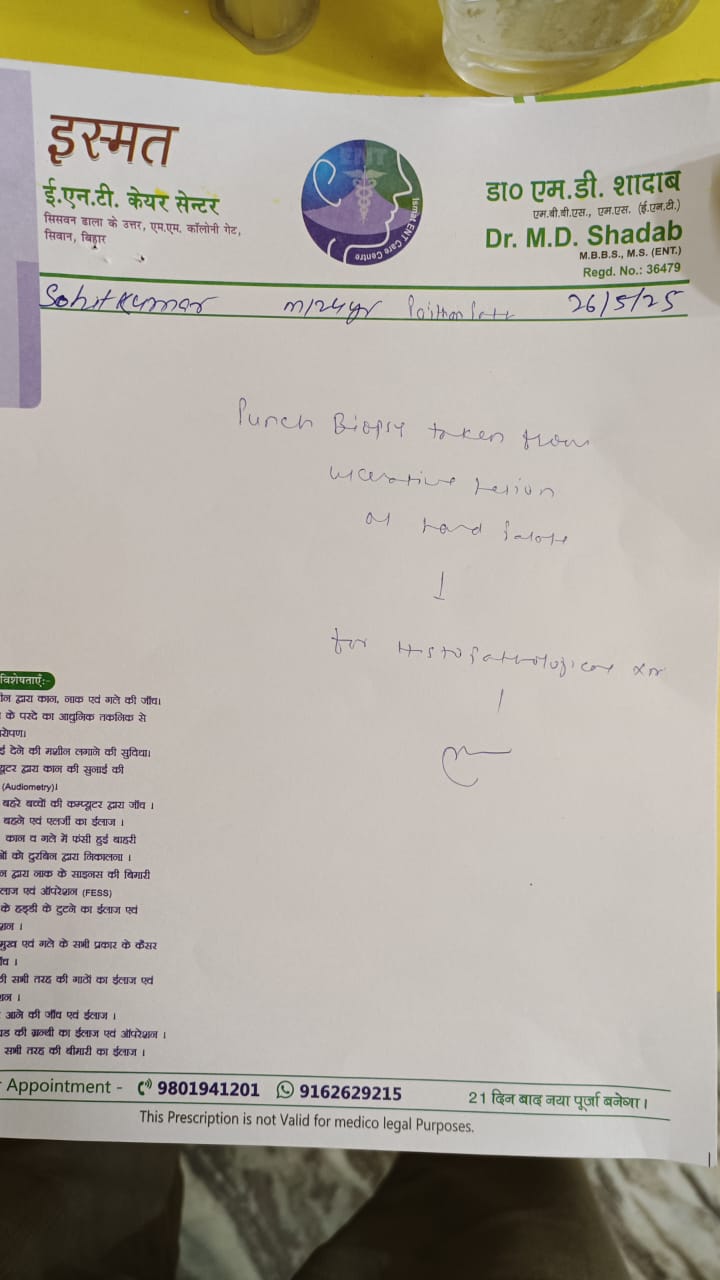 इस्मत
ई.एन.टी. केयर सेन्टर
सिसवन ढाला के उत्तर, एम.एम. कॉलोनी गेट,
सिवान, बिहार
ENT
Ismat ENT Care Centre
डा० एम.डी. शादाब
एम.बी.बी.एस., एम.एस. (ई.एन.टी.)
Dr. M.D. Shadab
M.B.B.S., M.S. (ENT.)
Regd. No.: 36479
Sohit Kumar m/24yr 26/5/25
Punch Biopsy taken from
ulcerative lesion
of Hard Palate
for Histopathological
विशेषताएँ:-
द्वारा कान, नाक एवं गले की जाँच।
के परदे का आधुनिक तकनिक से
रोपण।
देने की मशीन लगाने की सुविधा।
द्वारा कान की सुनाई की
(Audiometry)।
बहरे बच्चों की कम्प्यूटर द्वारा जाँच ।
बहने एवं एलर्जी का ईलाज ।
कान व गले में फंसी हुई बाहरी
को दुरबिन द्वारा निकालना ।
द्वारा नाक के साइनस की बिमारी
लाज एवं ऑपरेशन (FESS)
के हड्डी के टुटने का ईलाज एवं
शन ।
मुख एवं गले के सभी प्रकार के कैंसर
सभी तरह की गाठों का ईलाज एवं
शन ।
आने की जाँच एवं ईलाज ।
की ग्रन्थी का ईलाज एवं ऑपरेशन ।
सभी तरह की बीमारी का ईलाज ।
Appointment - 9801941201 9162629215
21 दिन बाद नया पूर्जा बनेगा।
This Prescription is not Valid for medico legal Purposes.